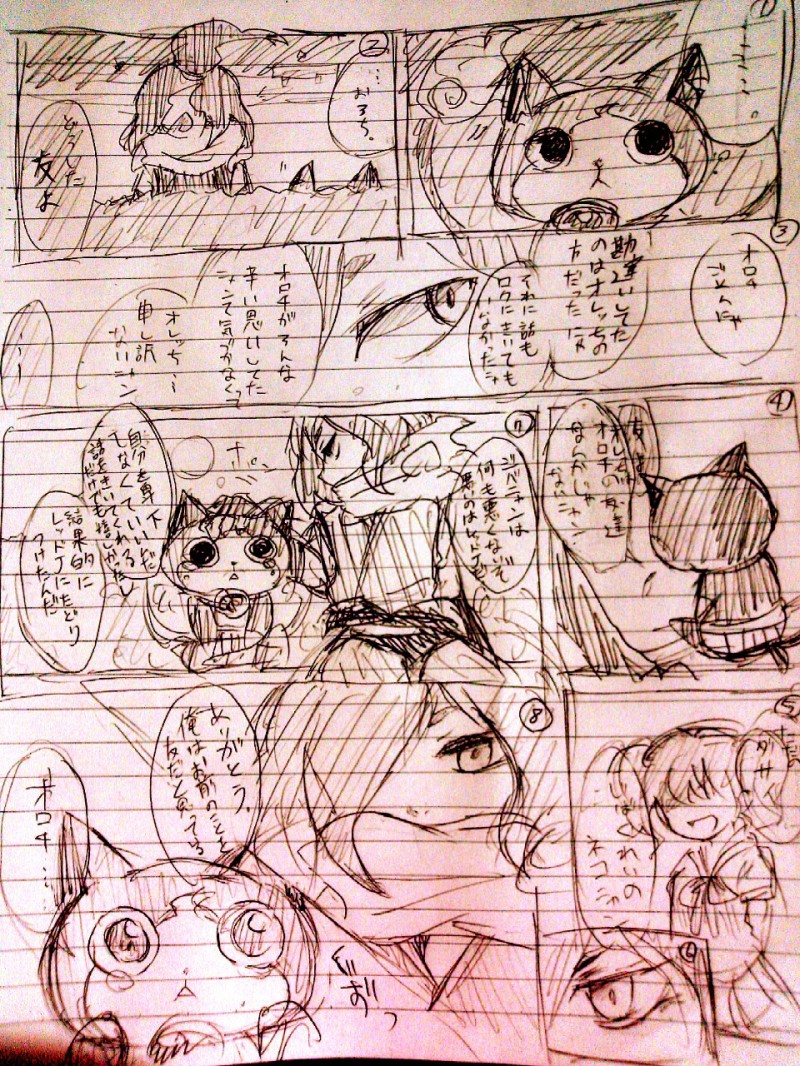 ①
……。
②
…おろち。
どうした
友よ
③
オロチ
ごめんにゃ
勘違いしてた
のはオレっちの
方だったにゃ
それに話も
ロクにきいても
なかったニャ
オロチがそんな
辛い思いしてた
ニャンて気づかなくて
オレっち…
申し訳
ないニャン
…
④
オロチの友達
なんかじゃ
ないニャン
⑤
ダサい
じばくれいの
ネコニャン
⑥
⑦
ジバニャンは
何も悪くないぞ
悪いのはレッドJだ
ポン
自分を卑下
しなくていい
話をきいてくれる
だけでも嬉しかったし
結果的に
レッドJにたどり
つけたんだ
⑧
ありがとう。
俺はお前のことを
友だと思っている
オロチ……
ぐおっ